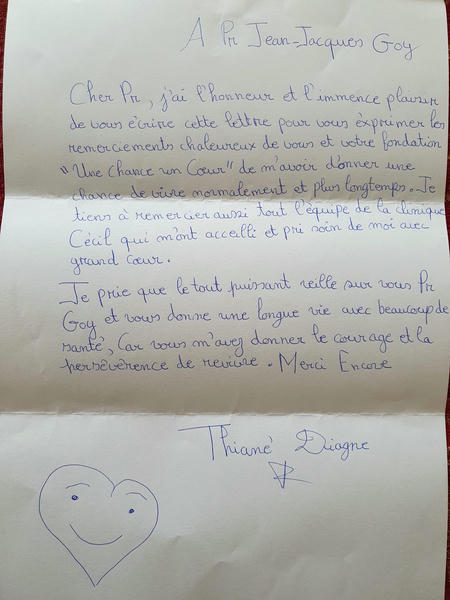 A Pr Jean-Jacques Goy
Cher Pr, j'ai l'honneur et l'immence plaisir
de vous écrire cette lettre pour vous éxprimer les
remerciements chaleureux de vous et votre fondation
"Une Chance un Cœur" de m'avoir donner une
chance de vivre normalement et plus longtemps. Je
tiens à remercier aussi tout l'équipe de la clinique
Cécil qui m'ont accelli et pri soin de moi avec
grand cœur.
Je prie que le tout puissant veille sur vous Pr
Goy et vous donne une longue vie avec beaucoup de
santé, Car vous m'avez donner le courage et la
persévérence de revivre. Merci Encore
Thiané Diagne